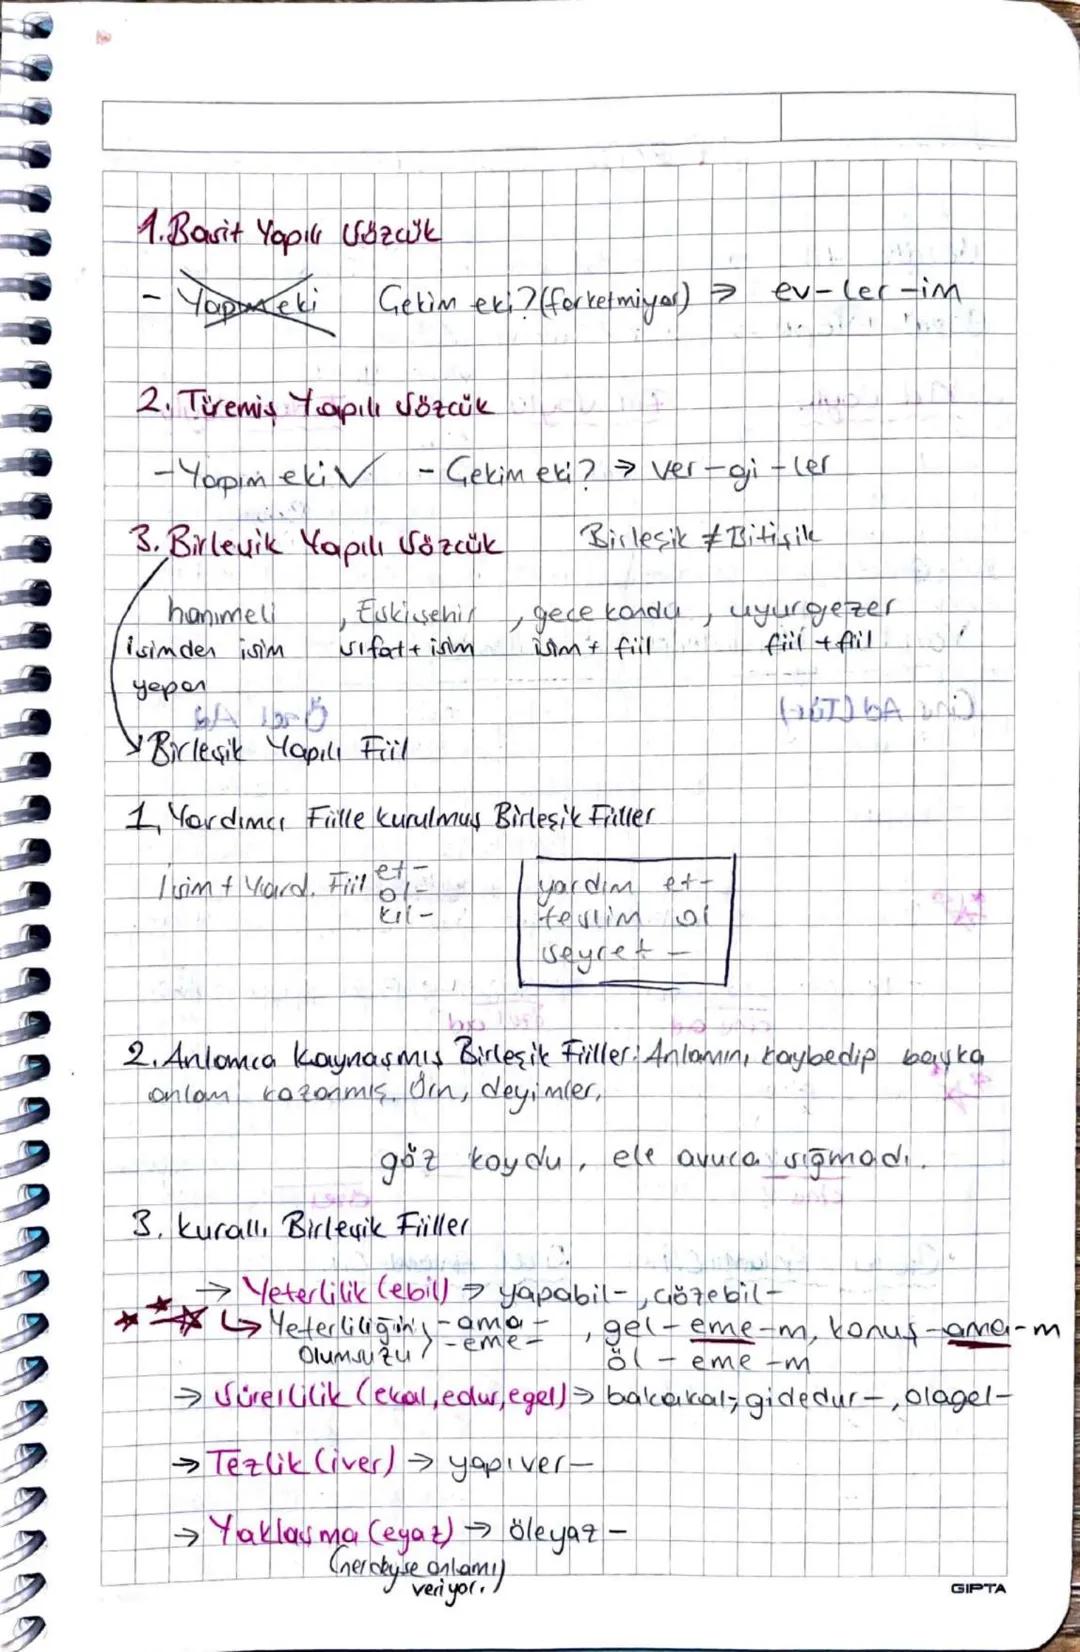 1. Basit Yapılı Sözcük
- Yapım eki Çekim eki? (farketmiyor) ⇒ ev-ler-im
2. Türemiş Yapılı Sözcük
- Yapım eki ✓ - Çekim eki? → ver-gi-ler
3. Birleşik Yapılı Sözcük Birleşik ≠ Bitişik
hanımeli , Eskişehir , gecekondu , uyurgezer
isimden isim sıfat + isim isim + fiil fiil + fiil
yapan
Birleşik Yapılı Fiil
1. Yardımcı Fiille Kurulmuş Birleşik Fiiller
İsim + Yard. Fiil et- ol- kıl-
yardım et-
teslim ol
seyret -
2. Anlamca Kaynaşmış Birleşik Fiiller: Anlamını kaybedip başka
anlam kazanmış. Örn, deyimler,
göz koydu, ele avuca sığmadı.
3. Kurallı Birleşik Fiiller
→ Yeterlilik (ebil) → yapabil-, çözebil-
↳ Yeterliliğin -ama- , gel-eme-m, konuş-ama-m
Olumsuzu -eme- öl-eme-m
→ Sürerlilik (ekal, edur, egel) → bakakal-, gidedur-, olagel-
→ Tezlik (iver) → yapıver-
→ Yaklaşma (eyaz) → öleyaz-
(nerdeyse anlamı
veriyor.)
GIPTA